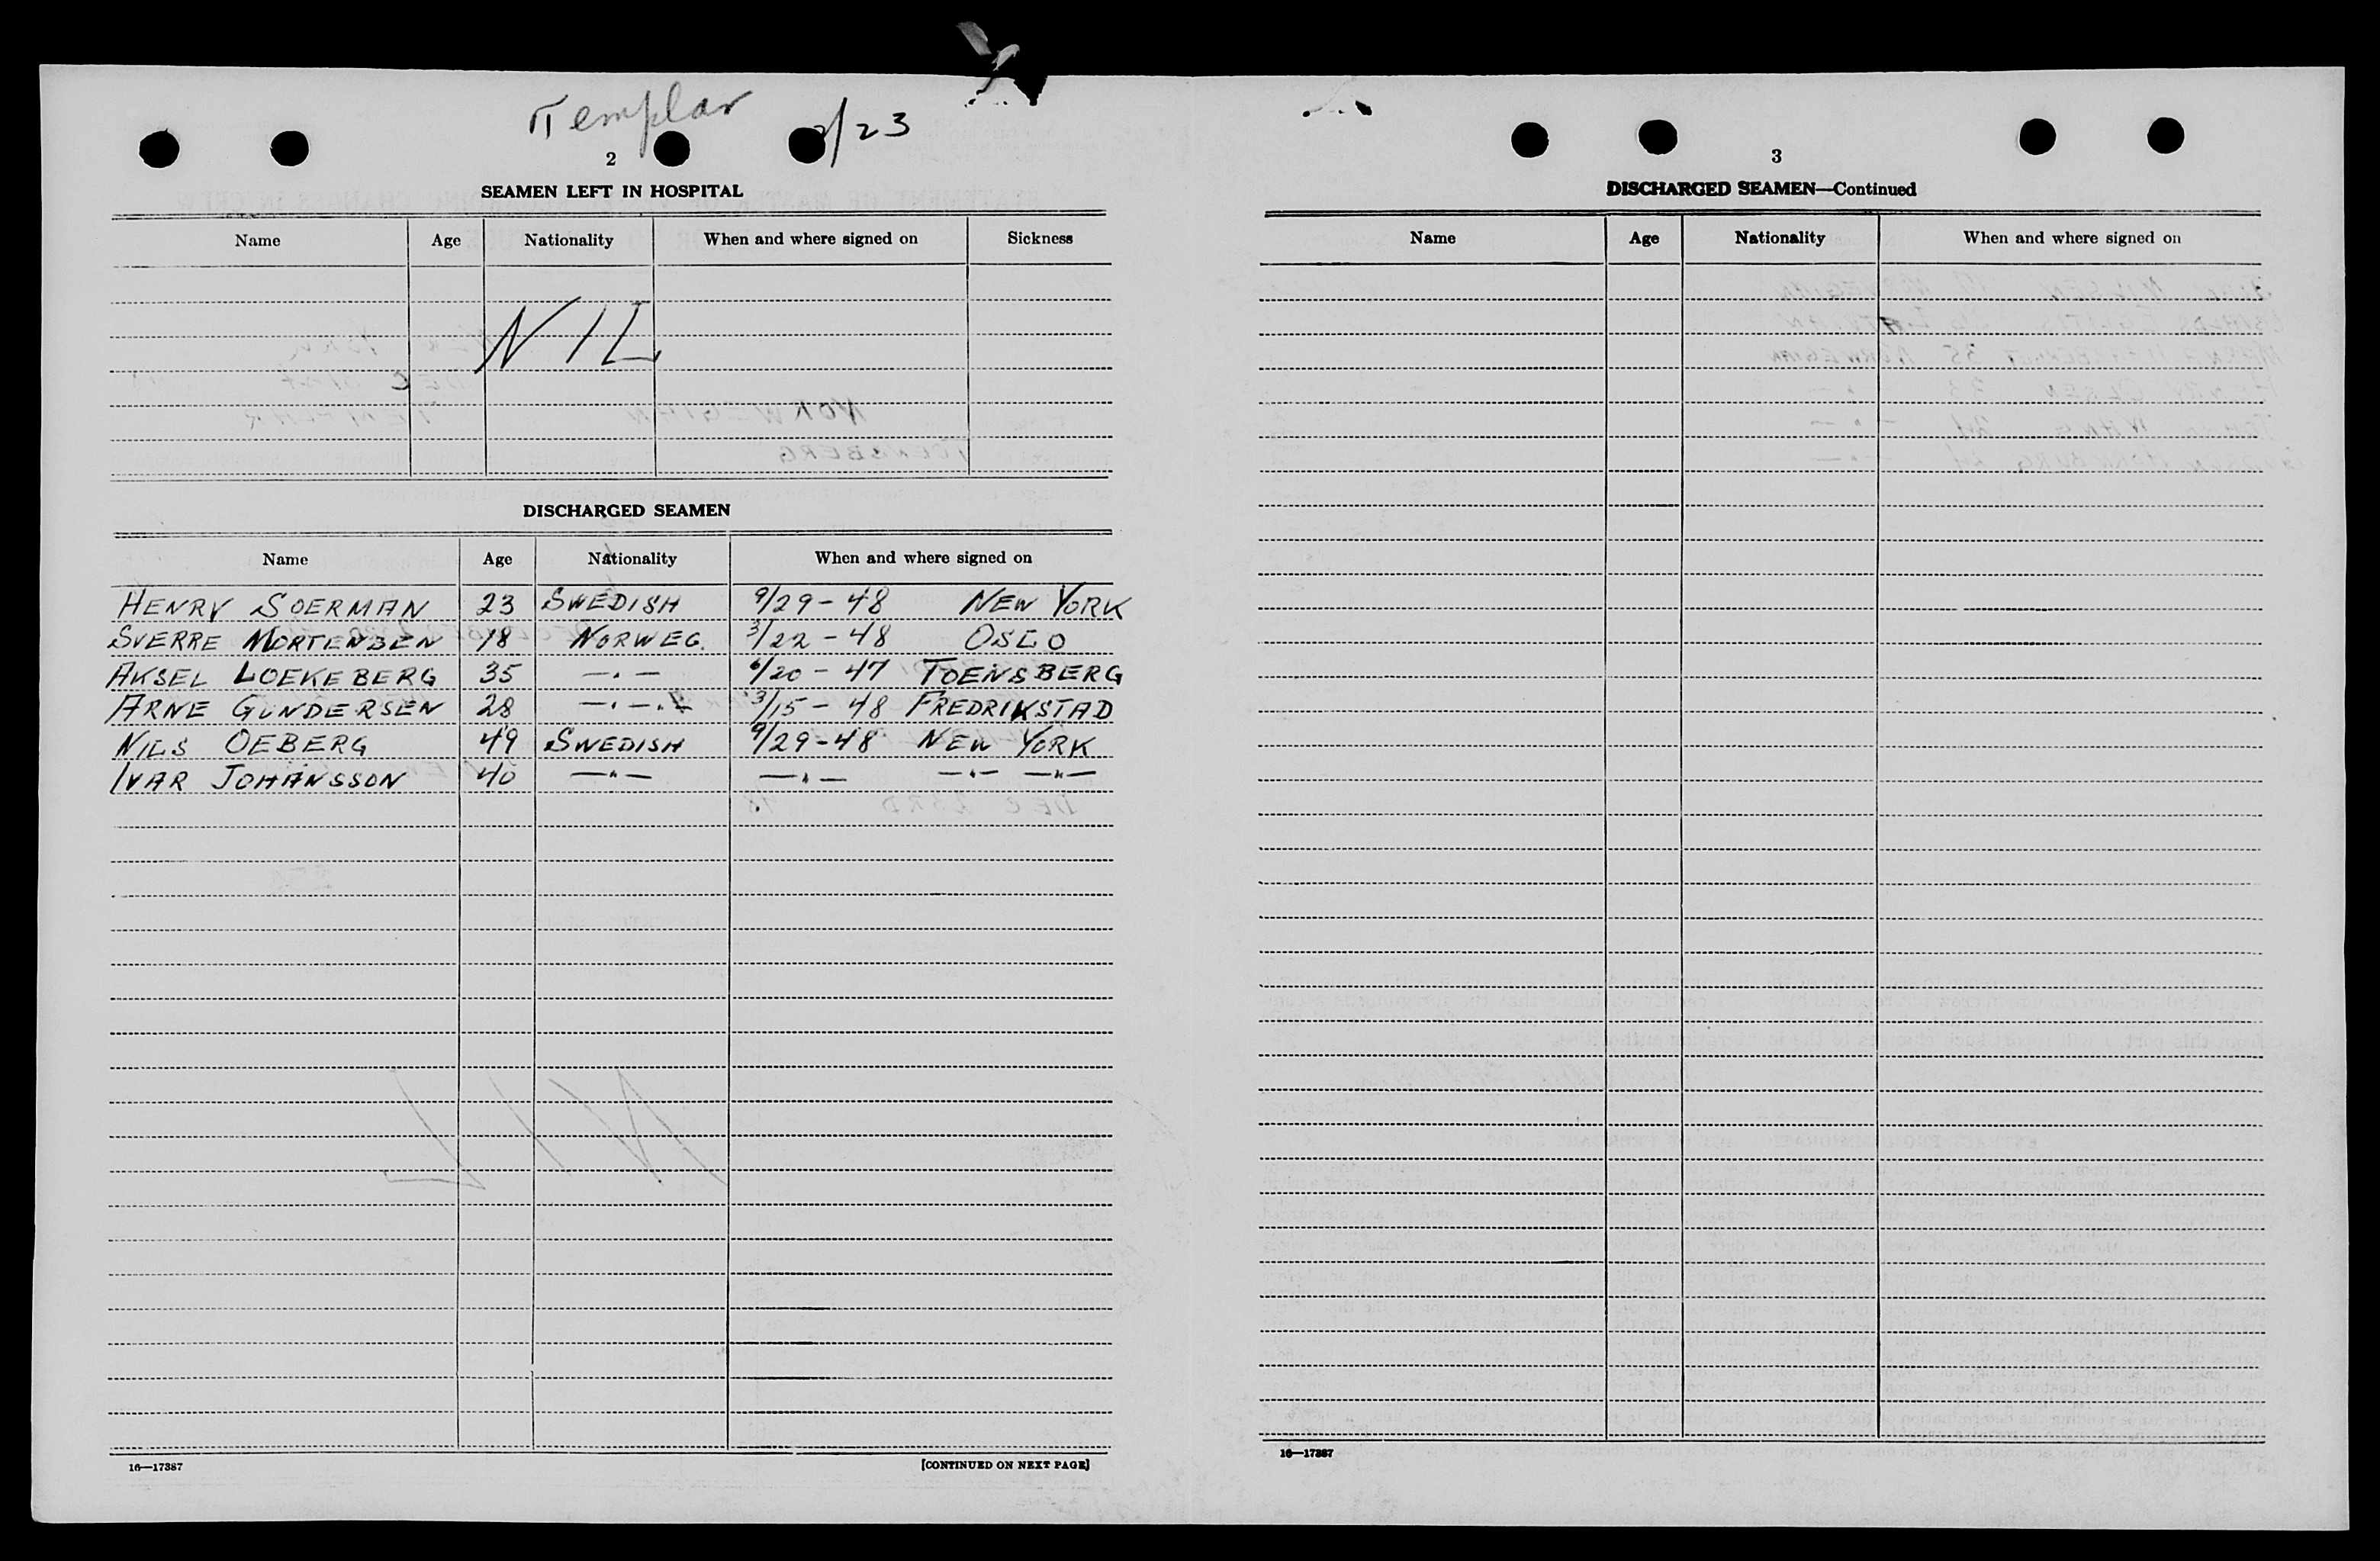 Templar
2/23
2
SEAMEN LEFT IN HOSPITAL
Name Age Nationality When and where signed on Sickness
NIL
DISCHARGED SEAMEN
Name Age Nationality When and where signed on
HENRY SOERMAN 23 SWEDISH 9/29-48 NEW YORK
SVERRE MORTENSEN 18 NORWEG. 3/22-48 OSLO
AKSEL LOEKEBERG 35 —.— 6/20-47 TOENSBERG
ARNE GUNDERSEN 28 —.—. 3/15-48 FREDRIKSTAD
NILS OEBERG 49 SWEDISH 9/29-48 NEW YORK
IVAR JOHANSSON 40 —"— —"— —"— —"—
16—17387 [CONTINUED ON NEXT PAGE]
3
DISCHARGED SEAMEN—Continued
Name Age Nationality When and where signed on
16—17387